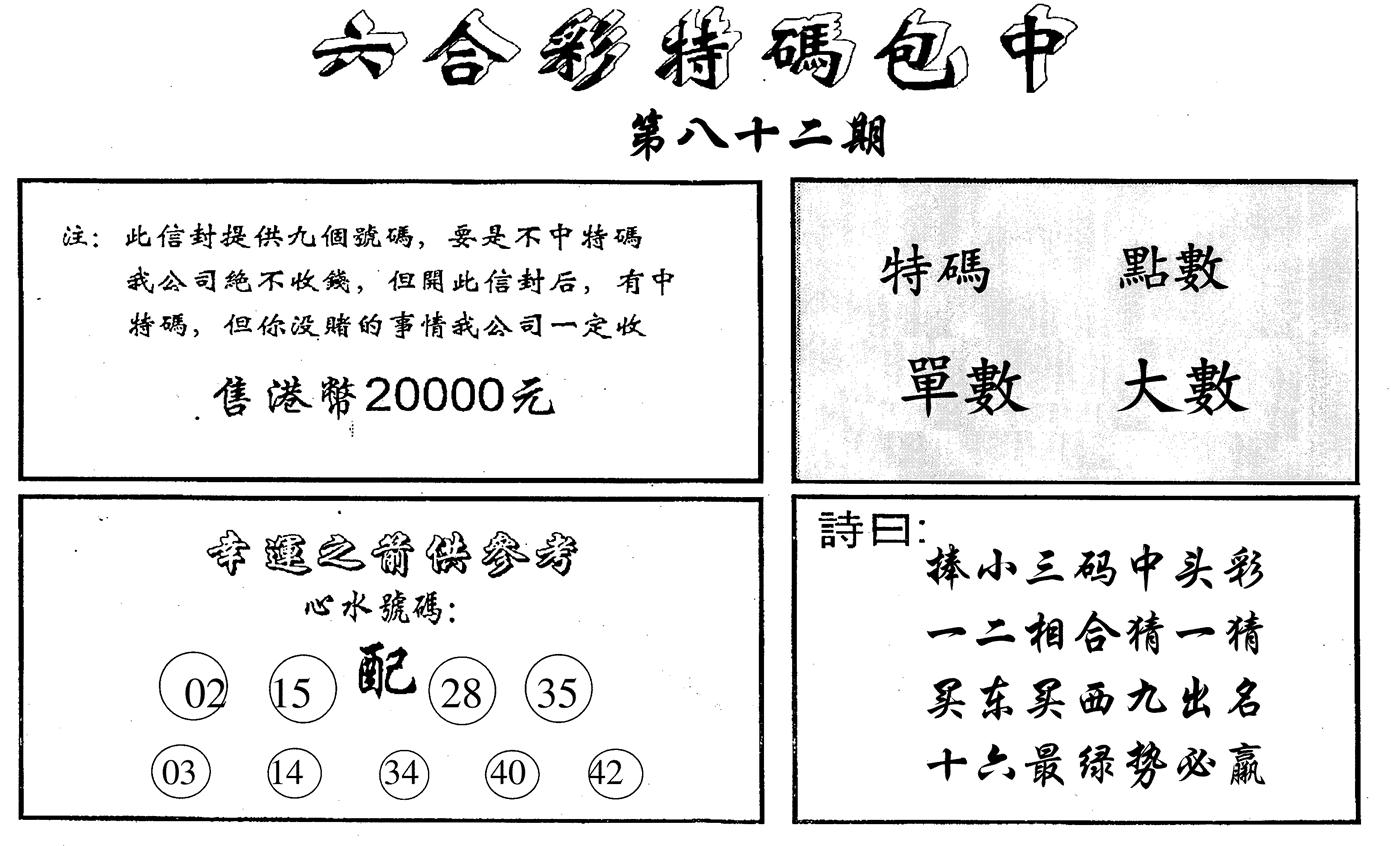 六合彩特碼包中
第八十二期
注：此信封提供九個號碼，要是不中特碼
我公司絕不收錢，但開此信封后，有中
特碼，但你没賭的事情我公司一定收
售港幣20000元
特碼 點數
單數 大數
幸運之箭供參考
心水號碼：
02 15 配 28 35
03 14 34 40 42
詩曰：
捧小三码中头彩
一二相合猜一猜
买东买西九出名
十六最绿势必赢